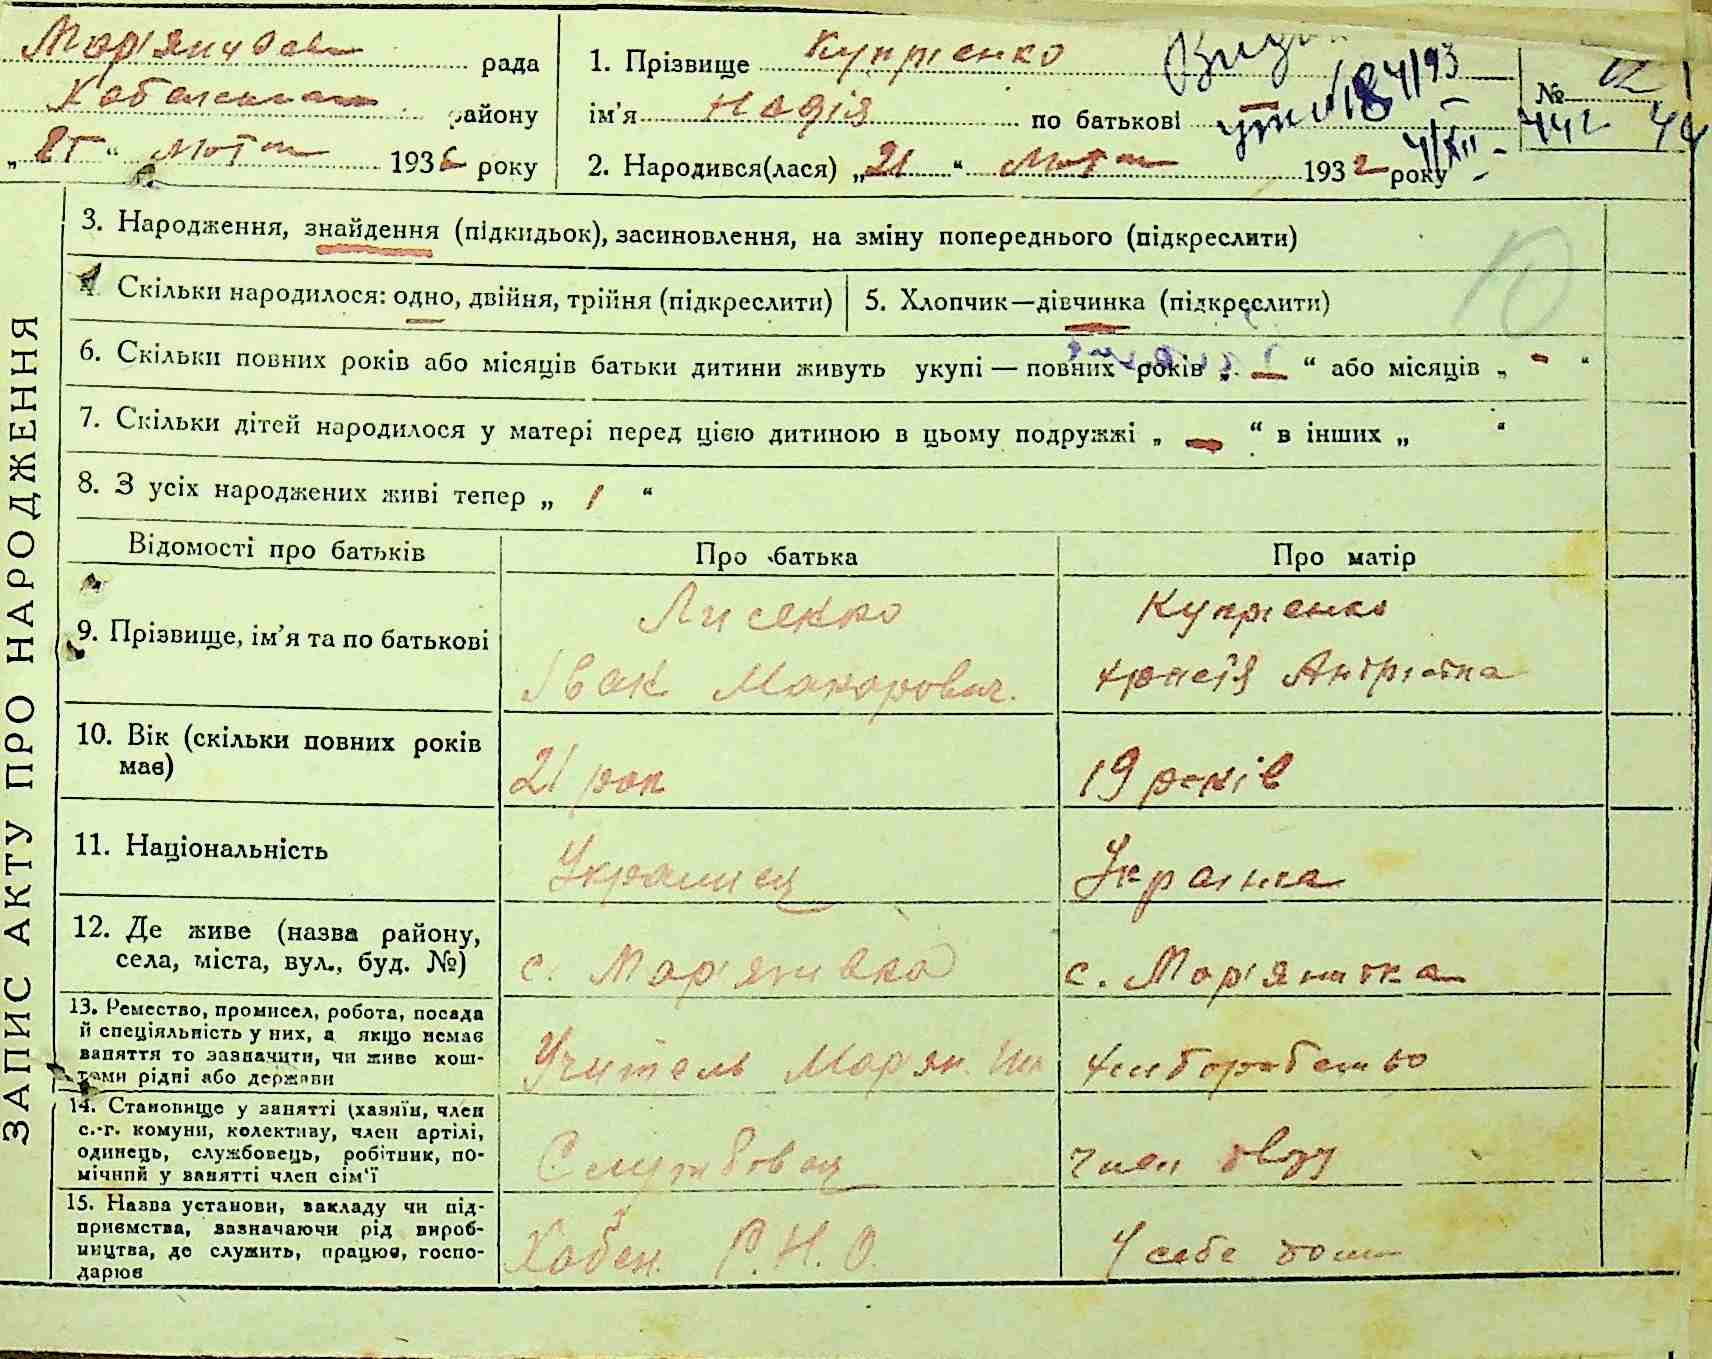 рада
1. Прізвище Купрієнко
№
району
ім'я Надія по батькові
" Лютого 193 року
2. Народився(лася) „21" Лютого 1932 року
ЗАПИС АКТУ ПРО НАРОДЖЕННЯ
3. Народження, знайдення (підкидьок), засиновлення, на зміну попереднього (підкреслити)
4. Скільки народилося: одно, двійня, трійня (підкреслити)
5. Хлопчик—дівчинка (підкреслити)
6. Скільки повних років або місяців батьки дитини живуть укупі — повних років „ — " або місяців „ - "
7. Скільки дітей народилося у матері перед цією дитиною в цьому подружжі „ — " в інших „ "
8. З усіх народжених живі тепер „ 1 "
Відомості про батьків
Про батька
Про матір
9. Прізвище, ім'я та по батькові
Лисенко
Іван Макарович.
Купрієнко
10. Вік (скільки повних років
має)
21 рок
19 років
11. Національність
Украинец
Украінка
12. Де живе (назва району,
села, міста, вул., буд. №)
с. Мар'янивка
с. Мар'янивка
13. Ремество, промисел, робота, посада
й спеціяльність у них, а якщо немає
заняття то зазначити, чи живе кош-
тами рідні або держави
Учитель Марян. Шк
хлиборобство
14. Становище у занятті (хазяїн, член
с.-г. комуни, колективу, член артілі,
одинець, службовець, робітник, по-
мічний у занятті член сім'ї
Службовец
член
15. Назва установи, закладу чи під-
приємства, зазначаючи рід вироб-
ництва, де служить, працює, госпо-
дарює
Хабен. Р.Н.О.
У себе дома